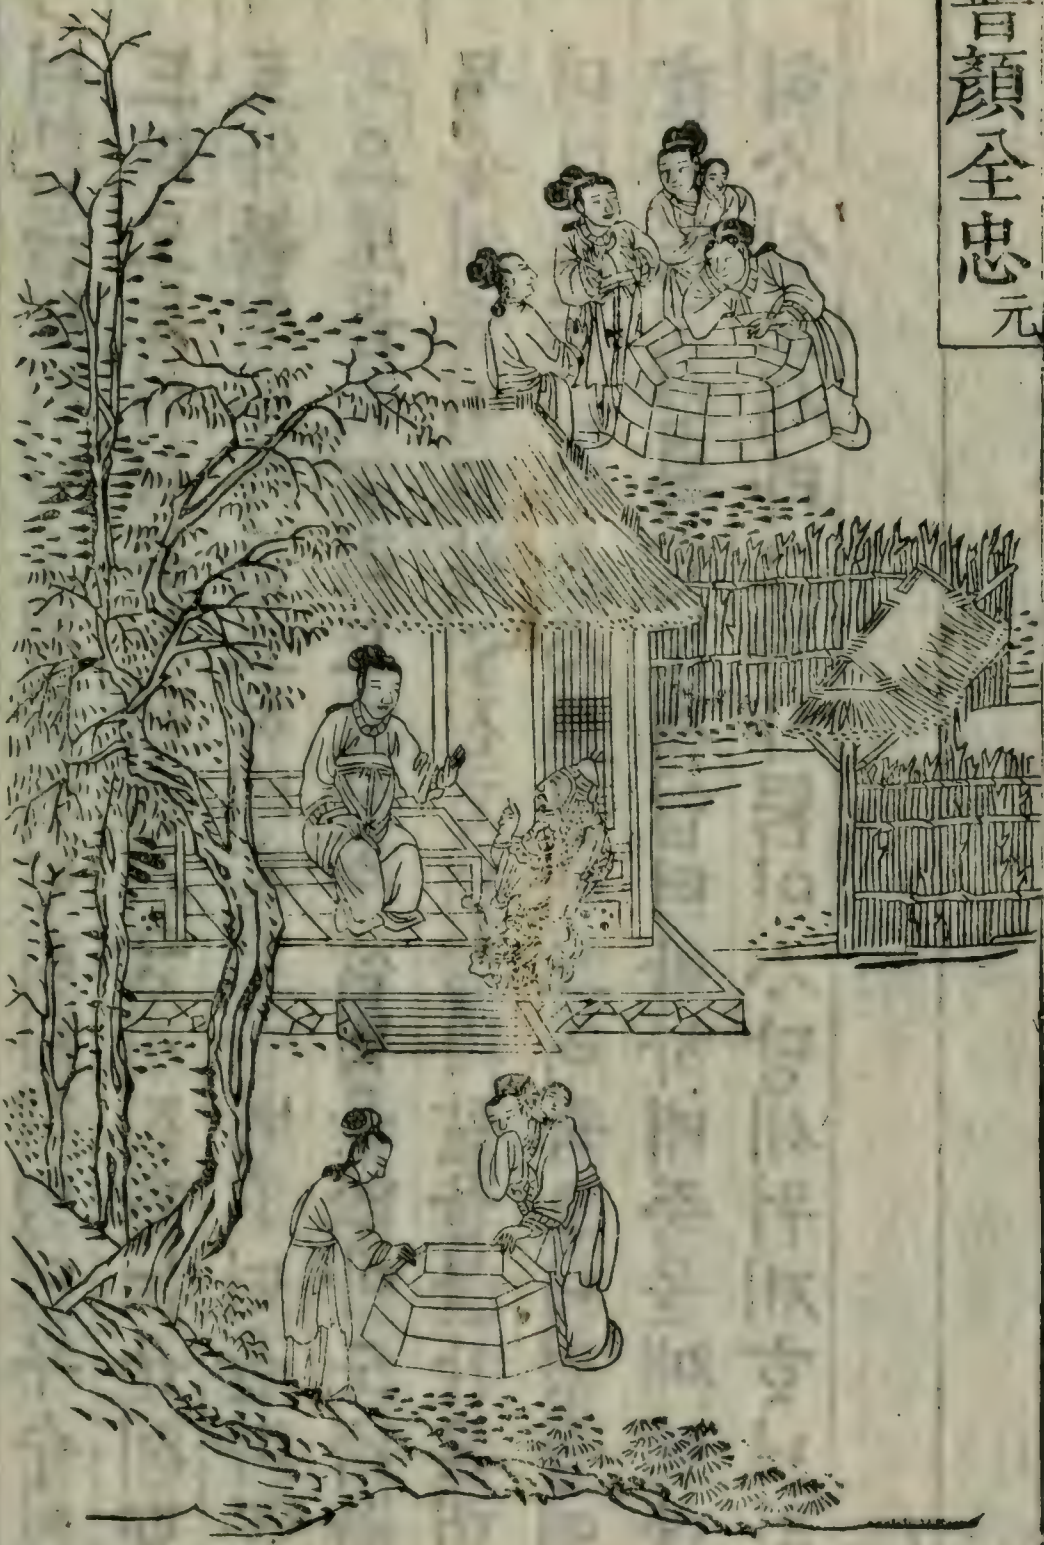 普顔全忠 元